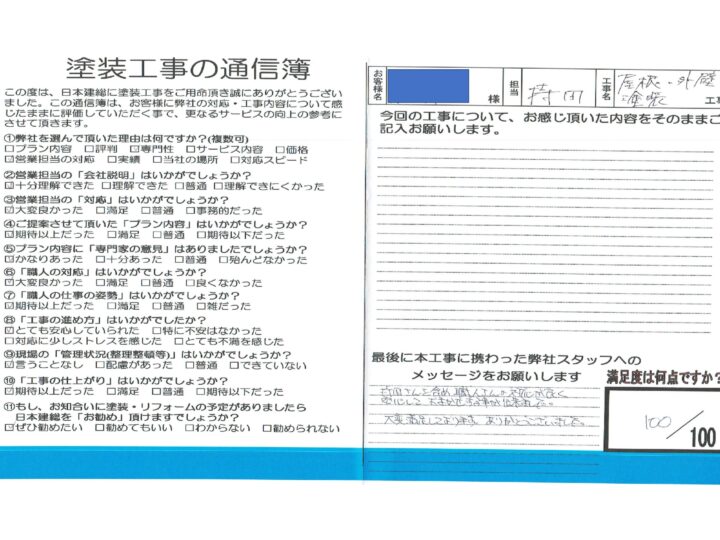 塗装工事の通信簿
この度は、日本建総に塗装工事をご用命頂き誠にありがとうござい
ました。この通信簿は、お客様に弊社の対応・工事内容について感
じたままに評価していただく事で、更なるサービスの向上の参考に
させて頂きます。
①弊社を選んで頂いた理由は何ですか?(複数可)
☐プラン内容 ☐評判 ☑専門性 ☐サービス内容 ☐価格
☑営業担当の対応 ☐実績 ☐当社の場所 ☐対応スピード
②営業担当の「会社説明」はいかがでしょうか?
☑十分理解できた ☐理解できた ☐普通 ☐理解できにくかった
③営業担当の「対応」はいかがでしょうか?
☑大変良かった ☐満足 ☐普通 ☐事務的だった
④ご提案させて頂いた「プラン内容」はいかがでしょうか?
☑期待以上だった ☐満足 ☐普通 ☐期待以下だった
⑤プラン内容に「専門家の意見」はありましたでしょうか?
☑かなりあった ☐十分あった ☐普通 ☐殆んどなかった
⑥「職人の対応」はいかがでしょうか?
☑大変良かった ☐満足 ☐普通 ☐良くなかった
⑦「職人の仕事の姿勢」はいかがでしょうか?
☑期待以上だった ☐満足 ☐普通 ☐雑だった
⑧「工事の進め方」はいかがでしたか?
☑とても安心していられた ☐特に不安はなかった
☐対応に少しストレスを感じた ☐とても不満を感じた
⑨現場の「管理状況(整理整頓等)」はいかがでしょうか?
☑言うことなし ☐配慮があった ☐普通 ☐できていない
⑩「工事の仕上がり」はいかがでしょうか?
☑期待以上だった ☐満足 ☐普通 ☐期待以下だった
⑪もし、お知合いに塗装・リフォームの予定がありましたら
日本建総を「お勧め」頂けますでしょうか?
☑ぜひ勧めたい ☐勧めてもいい ☐わからない ☐勧められない
お客様名 様 担当 持田 工事名 屋根・外壁
塗装 工
今回の工事について、お感じ頂いた内容をそのままご
記入お願いします。
最後に本工事に携わった弊社スタッフへの
メッセージをお願いします
持田さんを含め、職人さんの対応が良く
安心しておまかせする事が出来ました。
大変満足しております。ありがとうございました。
満足度は何点ですか?
100/100